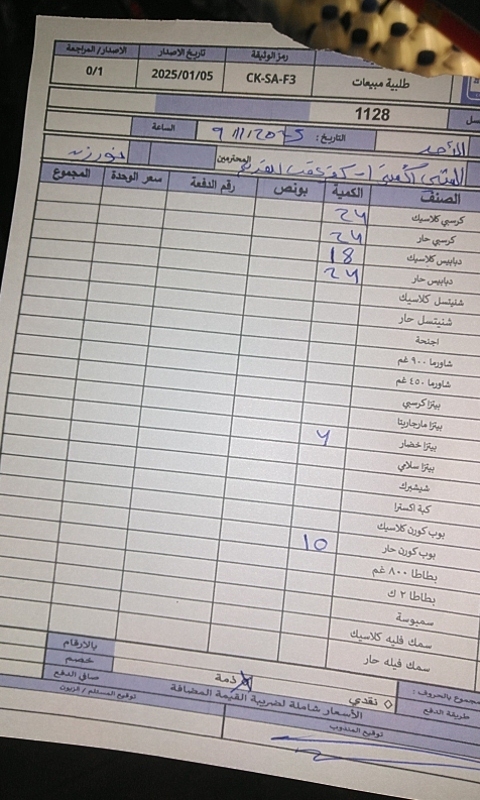 رمز الوثيقة تاريخ الاصدار الاصدار/ المراجعة
طلبية مبيعات CK-SA-F3 2025/01/05 0/1
1128
الأحد التاريخ: 9/11/2025 الساعة
المحترمين
الصنف الكمية بونص رقم الدفعة سعر الوحدة المجموع
كرسبي كلاسيك 24
كرسبي حار 24
دبابيس كلاسيك 18
دبابيس حار 24
شنيتسل كلاسيك
شنيتسل حار
اجنحة
شاورما ٩٠٠ غم
شاورما ٤٥٠ غم
بيتزا كرسبي
بيتزا مارجاريتا
بيتزا خضار
بيتزا سلامي
شيشبرك
كبة اكسترا
بوب كورن كلاسيك
بوب كورن حار 10
بطاطا ٨٠٠ غم
بطاطا ٢ ك
سمبوسة
سمك فليه كلاسيك
سمك فيله حار
بالارقام
مجموع بالحروف : خصم
طريقة الدفع ◇ نقدي ذمة صافي الدفع
الأسعار شاملة لضريبة القيمة المضافة
توقيع المندوب توقيع المستلم / الزبون